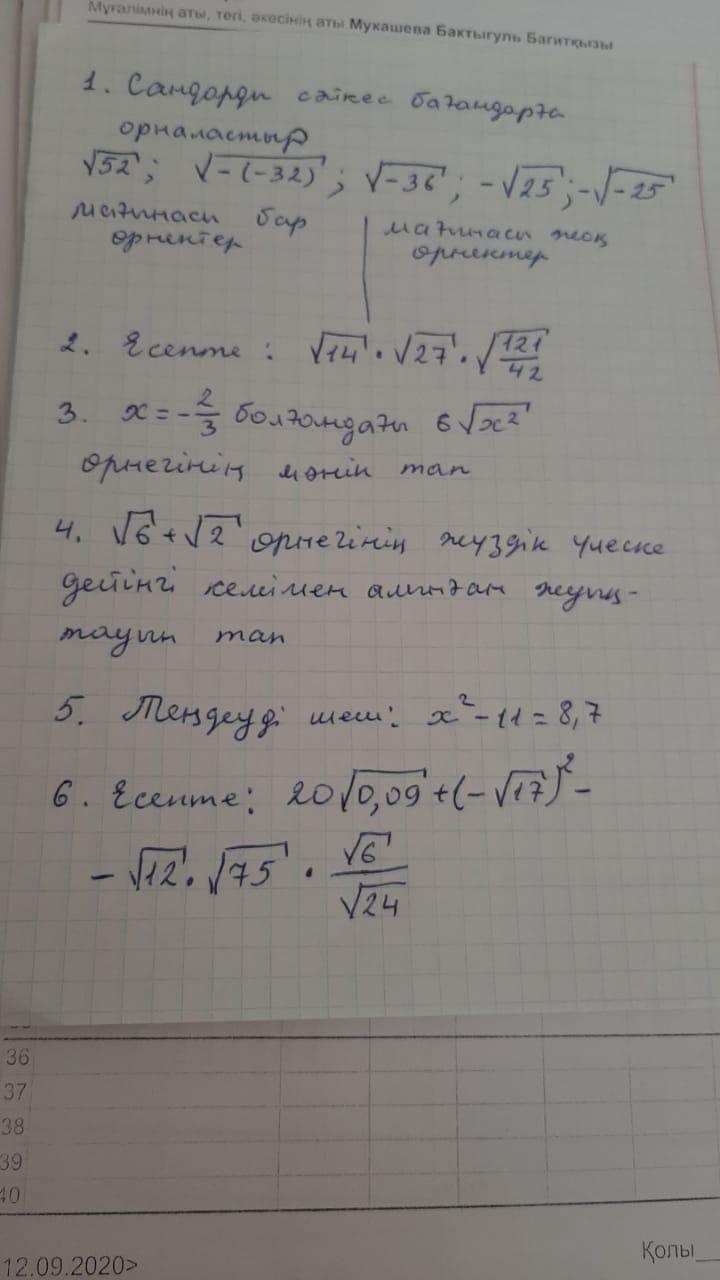 Мұғалімнің аты, тегі, әкесінің аты Мукашева Бактыгуль Багитқызы
1. Сандарды сәйкес бағандарға
орналастыр
√52; √-(-32); √-36; -√25; -√-25
мағынасы бар
өрнектер
мағынасы жоқ
өрнектер
2. Есепте: √14 · √27 · √121/42
3. x = -2/3 болғандағы 6√x²
өрнегінің мәнін тап
4. √6 + √2 өрнегінің жүздік үлеске
дейінгі кемімен алынған жуық-
тауын тап
5. Теңдеуді шеш: x² - 11 = 8,7
6. Есепте: 20√0,09 + (-√17)² -
- √12 · √75 · √6/√24
36
37
38
39
40
12.09.2020>
Қолы__